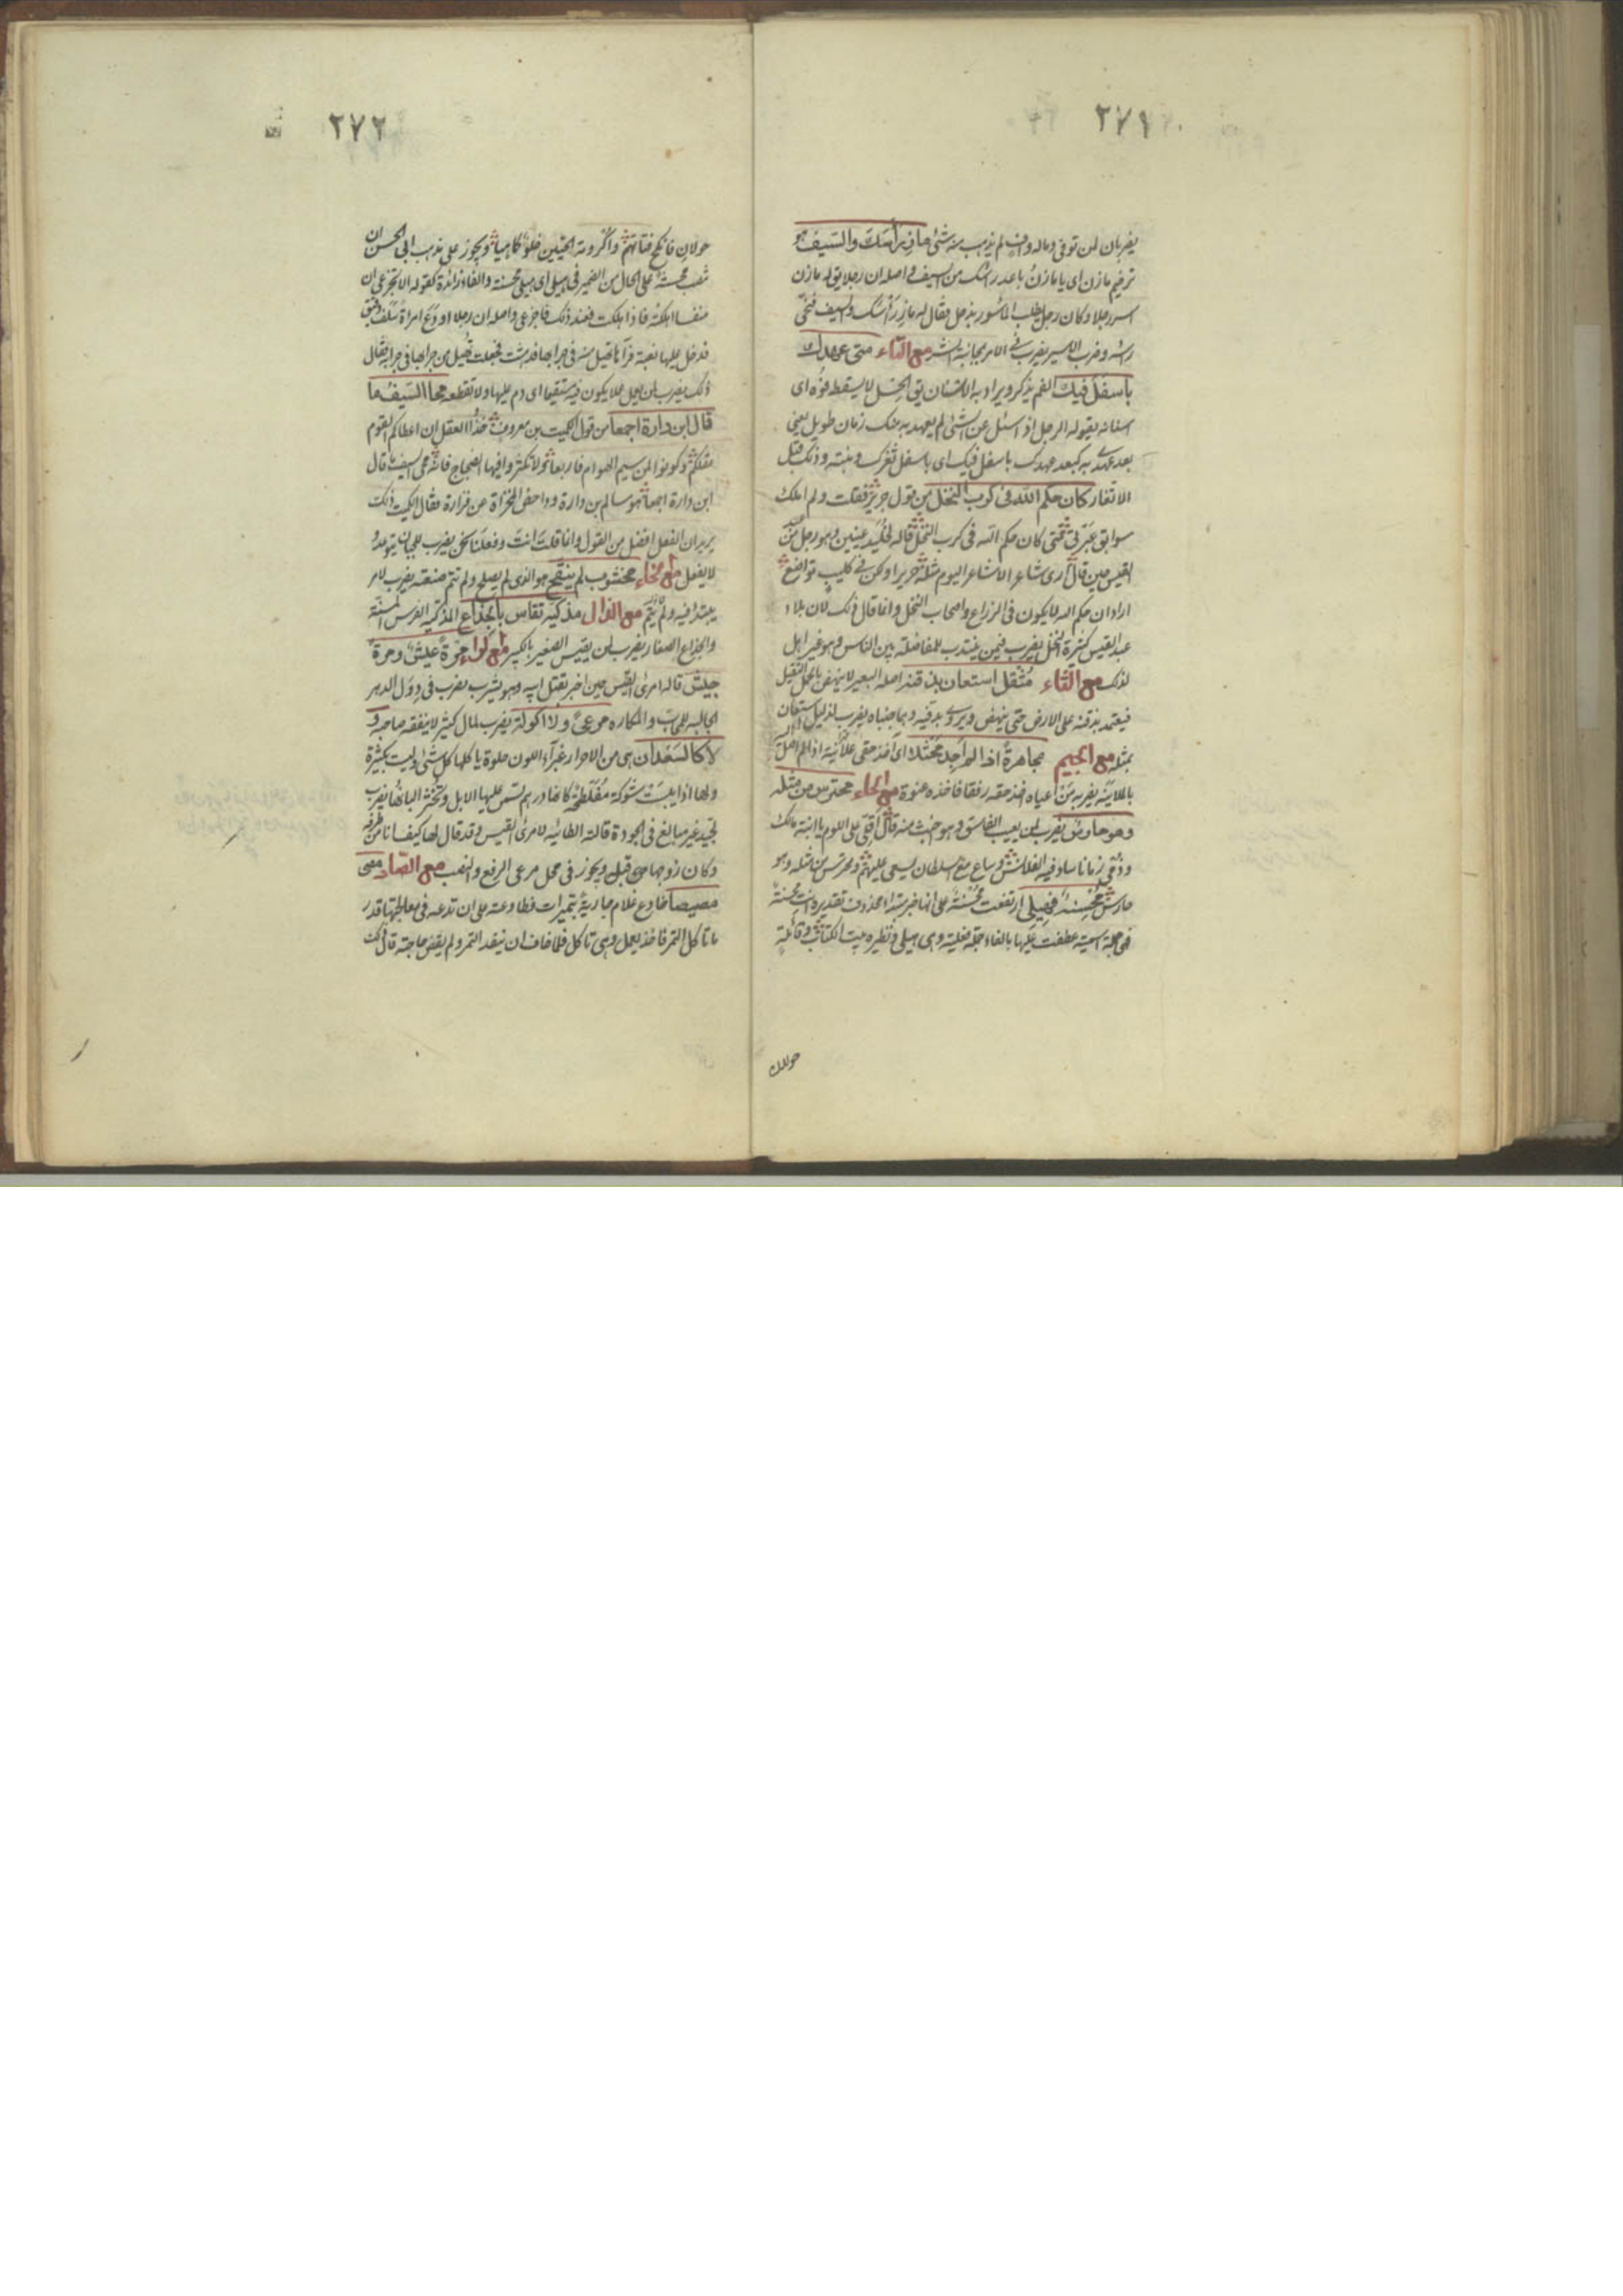 ٢٧١
يضربان لمن توفى وماله وافر لم يذهب منه شئ ماز رأسك والسيف هو
ترخيم مازن اى يا مازن باعد رأسك من السيف واصله ان رجلا يق له مازن
اسر رجلا وكان رجل يطلب المأسور بذحل فقال له ماز رأسك والسيف فنحى
رأسه وضرب الاسير يضرب فى الامر بمجانبة الشر مع التاء متى عهدك
باسفل فيك الفم يذكر ويراد به الاسنان يق الحسل لا يسقط فوه اى
اسنانه يقوله الرجل اذا سئل عن شئ لم يعهد به منك زمان طويل يعنى
بعد عهدى به كبعد عهدك باسفل فيك اى باسفل ثغرك ونبته وذلك قبل
الاثغار كان حكم الله فى كرب النخل من قول جرير فقلت ولم املك
سوابق عبرتى متى كان حكم الله فى كرب النخل قاله لخليد عينين وهو رجل من عبد
القيس حين قال ارى شاعرا لا شاعر اليوم مثله جريرا ولكن فى كليب تواضع
اراد ان حكم الله لا يكون فى الزراع واصحاب النخل وانما قال ذلك لان بلاد
عبد القيس كثيرة النخل يضرب فيمن ينتدب للمفاضلة بين الناس وهو غير اهل
لذلك مع الثاء مثقل استعان بذقنه اصله البعير لا ينهض بالحمل الثقيل
فيعتمد بذقنه على الارض حتى ينهض ويروى بدفيه وهما جنباه يضرب لذليل استعان
بمثله مع الجيم مجاهرة اذا لم اجد مختلا اى آخذ حقى علانية اذا لم اصل
بالملاينة يضربه من اعياه اخذ حقه رفقا فاخذه عنوة مع الحاء محترس من مثله
وهو حارس يضرب لمن يعيب الفاسق وهو اخبث منه قال اقلى على اللوم يا ابنة مالك
وذمى زمانا ساد فيه الفلافس وساع مع السلطان يسعى عليهم ومحترس من مثله وهو
حارس محسنة فهيلى ارتفعت محسنة على انها خبر مبتدأ محذوف تقديره انت محسنة
فهى جملة اسمية عطفت عليها بالفاء جملة فعلية وهى هيلى ونظيره بيت الكتاب وقائلة
خولان
٢٧٢
خولان فانكح فتاتهم واكرومة الحيين خلو كما هيا ويجوز على مذهب ابى الحسن ان
تنصب محسنة على الحال من الضمير فى هيلى اى هيلى محسنة والفاء زائدة كقوله لا تجزعى ان
منفسا اهلكته فاذا هلكت فعند ذلك فاجزعى واصله ان رجلا اودع امرأة سلف دقيق
فدخل عليها بغتة فرآها تهيل منه فى جرابها فدهشت فجعلت تهيل من جرابها فى جرابه فقال
ذلك يضرب لمن يعمل عملا يكون فيه مستقيما اى دم عليها ولا تقطعه محا السيف ما
قال ابن دارة اجمعا من قول الكميت بن معروف خذوا العقل ان اعطاكم القوم
عقلكم وكونوا كمن سيم الهوان فاربعا ولا تكثروا فيها الضجاج فانه محى السيف ما قال
ابن دارة اجمعا هو سالم بن دارة
يريد ان الفعل افضل من القول وانما قلت انت وفعلنا نحن يضرب للجبان يتوعد و
لا يفعل مع الخاء مخشوب لم ينقح هو الذى لم يصلح ولم تتم صنعته يضرب لامر
يبتدأ فيه ولم يتم مع الذال مذكية تقاس بالجذاع المذكية الفرس المسنة
والجذاع الصغار يضرب لمن يقيس الصغير بالكبير مع الراء مرة عيش ومرة
جيش قاله امرئ القيس حين اخبر بقتل ابيه وهو يشرب يضرب فى دول الدهر
الجالبه للمحاب والمكاره مرعى ولا اكولة يضرب لمال كثير لا ينفقه صاحبه و
لا كالسعدان هى من الاحرار غبراء اللون حلوة يأكلها كل شئ وليست بكثيرة
ولها اذا يبست شوكة مفلطحة كانها درهم تسمن عليها الابل وتخثر البانها يضرب
لجيد غير مبالغ فى الجودة قالته الطائيه لامرئ القيس وقد قال لها كيف انا من طرفة
وكان زوجها من قبل ويجوز فى محل مرعى الرفع والنصب مع الصاد مصى
مصيصا خادع غلام جارية بتميرات فطاوعته على ان تدعه فى معالجتها قدر
ما تأكل التمر فاخذ يعمل وهى تأكل فلما خاف ان ينفد التمر ولم يقض حاجته قال ذلك